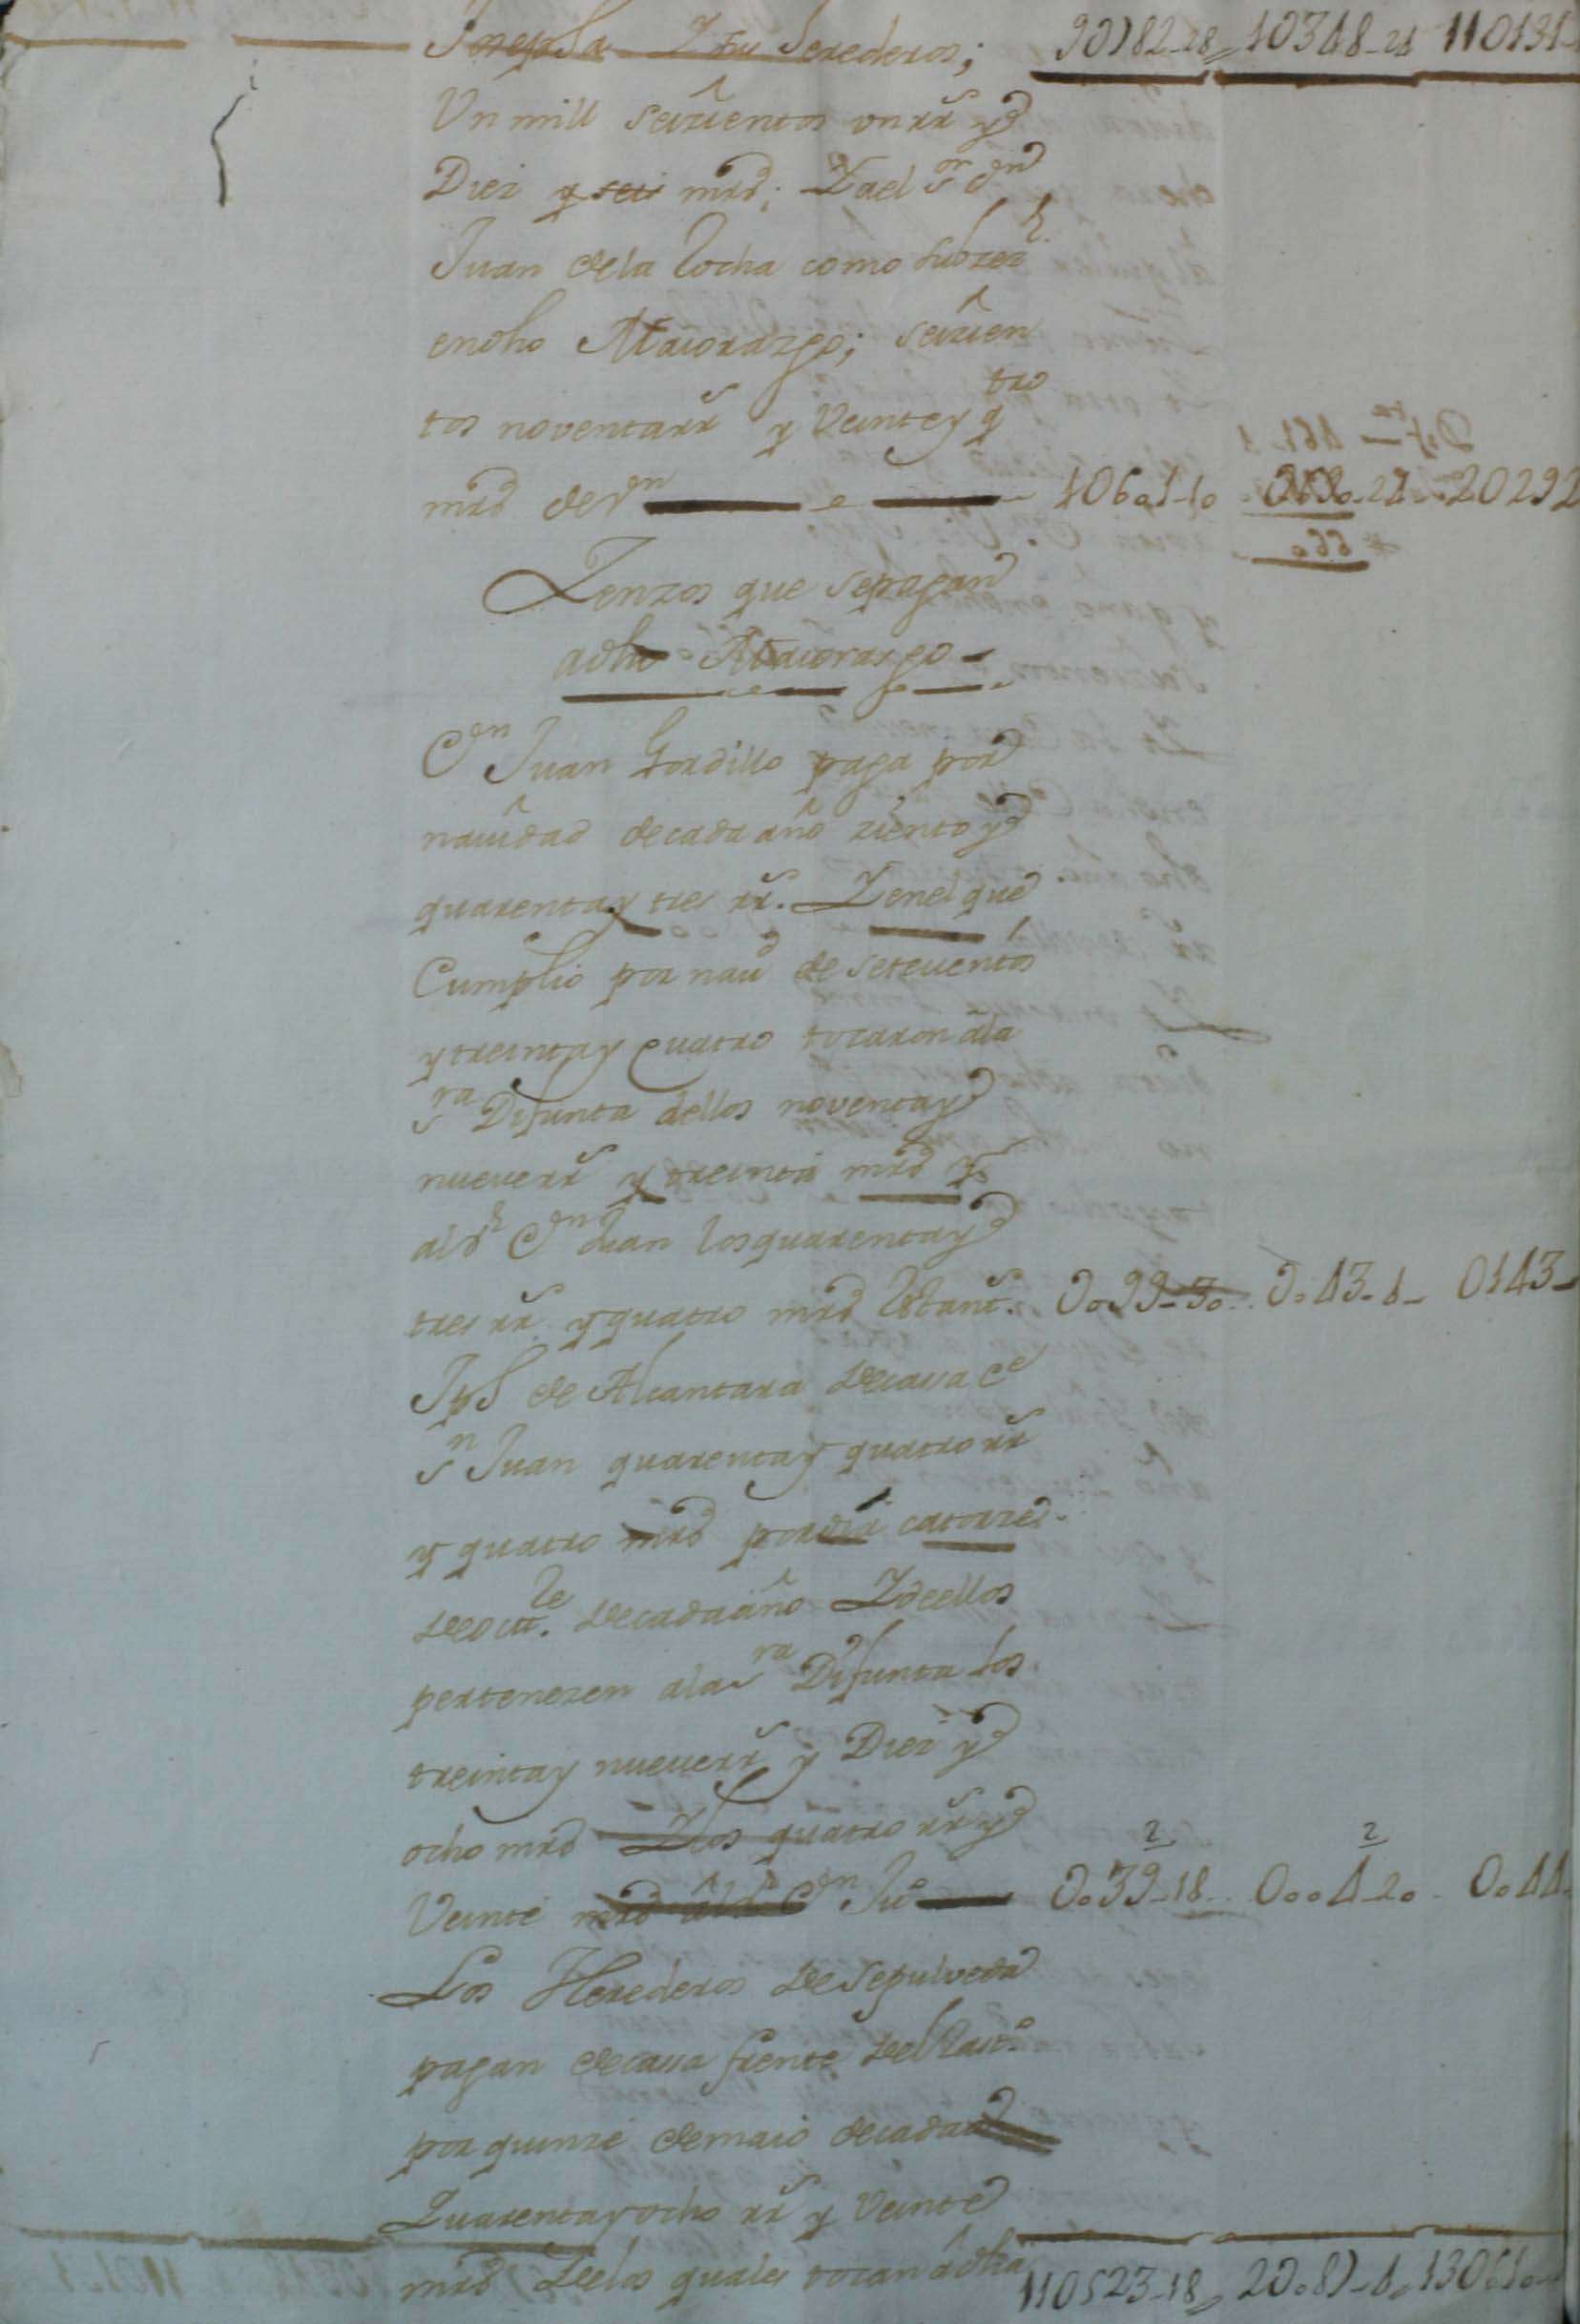 Josepha Y su herederos; 9U782-28 1U348-21 11U131-
Un mill seiscientos un rs y
Diez y seis mrs; Y a el Sr Dn
Juan de la Rocha como subzesr
en dho Maiorazgo; seiscien
tos noventa rs y Veinte y qtro
mrs de vn 1U6o1-1o 0690-24 2U292
Zenzos que se pagan
a dho Maiorazgo
Dn Juan Gordillo paga por
nauidad de cada año ziento y
quarenta y tres rs. Y en el que
Cumplio por naud de seteuentos
y treinta y quatro tocaron a la
sra Difunta dellos noventa y
nueue rs y treinta mrs y
al dho Dn Juan los quarenta y
tres rs y quatro mrs Restants. 0o99-3o 0o43-4 0143-
Jph de Alcantara de cassa Ce
Sn Juan quarenta y quatro rs
y quatro mrs por dia catorze
de octre. de cada año Y de ellos
pertenezen a la sra Difunta los
treinta y nueue rs y Diez y
ocho mrs Y los quatro rs y
Veinte mrs al dho Dn Juo 0o39-18 0oo4-2o 0o44-
Los Herederos de Sepulveda
pagan de cassa frente del Rastro
por quinze de maio de cada año
Quarenta y ocho rs y Veinte
mrs De los quales tocan a dha
11U523-18 2Uo87-4 13U61o-